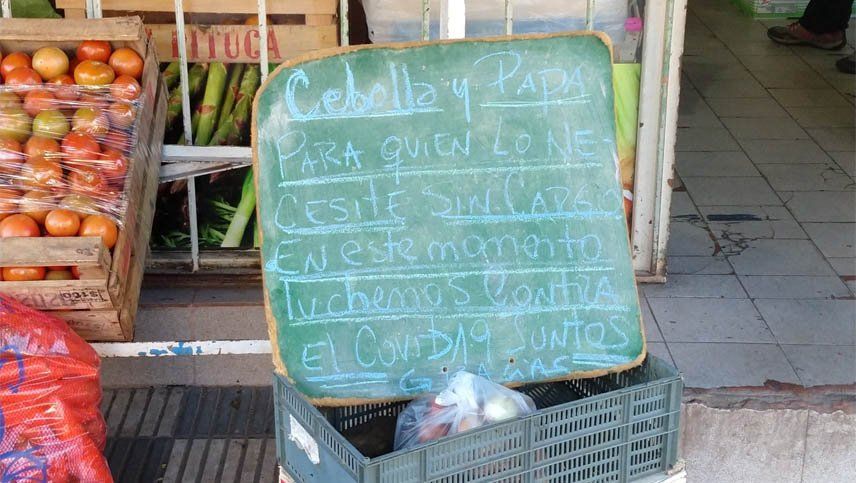 Cebolla y PAPA
PARA QUIEN LO NE-
CESITE SIN CARGO
En este momento
luchemos CONTRA
EL COVID19 JUNTOS
GRACIAS
ITUCA